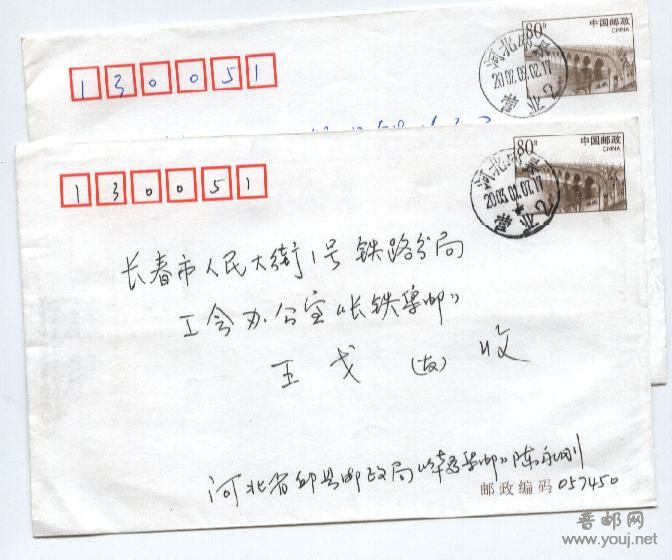 130051
80分
中国邮政
CHINA
河北邱县
营业
130051
80分
中国邮政
CHINA
河北邱县
营业
长春市人民大街1号铁路分局
工会办公室《长铁集邮》
王戈(友) 收
河北省邱县邮政局 集邮》陈永刚
邮政编码 057450
晋邮网
www.youj.net